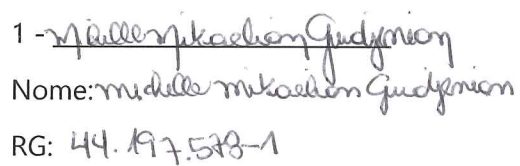 1 - Michelle Mikaelian Gudjenian
Nome: Michelle Mikaelian Gudjenian
RG: 44.197.573-1